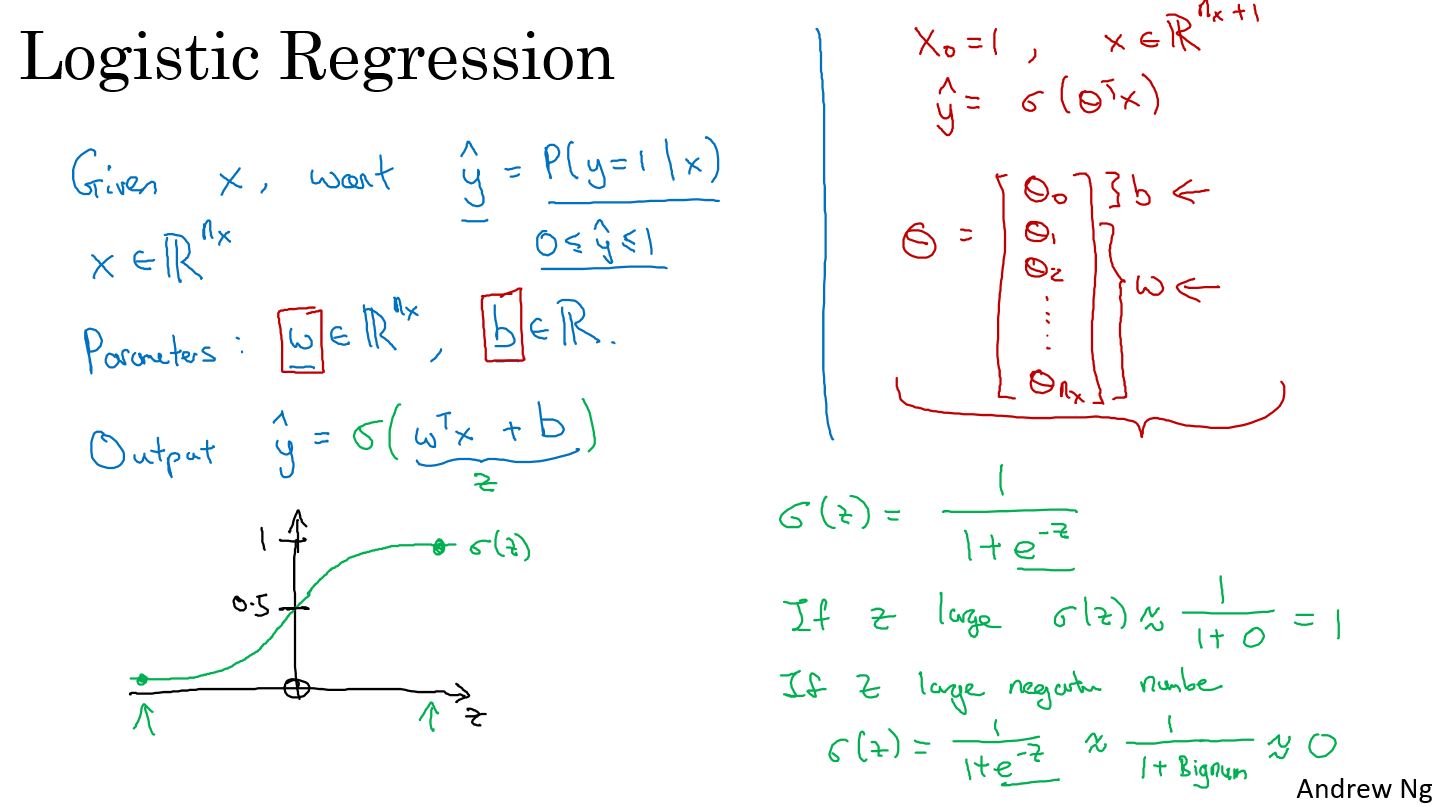 Logistic Regression
Given x, want ŷ = P(y=1|x)
x ∈ ℝ^{n_x}
0 ≤ ŷ ≤ 1
Parameters: w ∈ ℝ^{n_x}, b ∈ ℝ.
Output ŷ = σ(wᵀx + b)
z
1
σ(z)
0.5
z
x₀ = 1, x ∈ ℝ^{n_x+1}
ŷ = σ(θᵀx)
θ = [θ₀ } b ←
θ₁
θ₂
⋮
θ_{n_x}] } w ←
σ(z) = 1/(1+e^{-z})
If z large σ(z) ≈ 1/(1+0) = 1
If z large negative number
σ(z) = 1/(1+e^{-z}) ≈ 1/(1+Bignum) ≈ 0
Andrew Ng